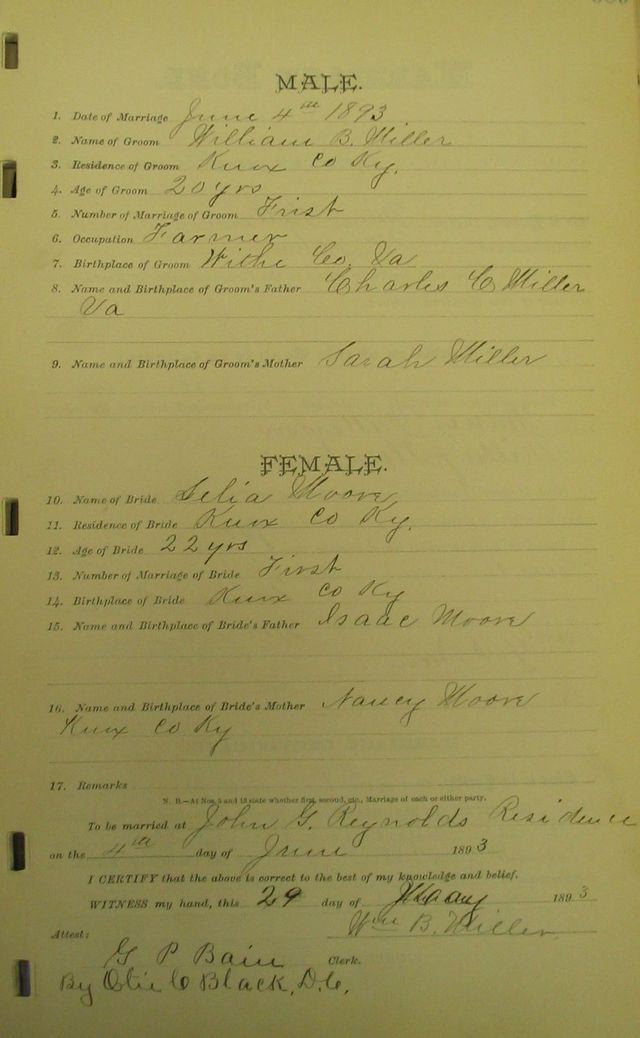 MALE.
1. Date of Marriage June 4th 1893
2. Name of Groom William B. Miller
3. Residence of Groom Knox Co Ky.
4. Age of Groom 20 yrs
5. Number of Marriage of Groom Frist
6. Occupation Farmer
7. Birthplace of Groom Withe Co. Va
8. Name and Birthplace of Groom's Father Charles C Miller
Va
9. Name and Birthplace of Groom's Mother Sarah Miller
FEMALE.
10. Name of Bride Selia Moore
11. Residence of Bride Knox Co Ky.
12. Age of Bride 22 yrs
13. Number of Marriage of Bride First
14. Birthplace of Bride Knox Co Ky
15. Name and Birthplace of Bride's Father Isaac Moore
16. Name and Birthplace of Bride's Mother Nancy Moore
Knox Co Ky
17. Remarks
N. B.—At Nos. 5 and 13 state whether first, second, etc., Marriage of each or either party.
To be married at John G. Reynolds Residence
on the 4th day of June 1893
I CERTIFY that the above is correct to the best of my knowledge and belief.
WITNESS my hand, this 29 day of May 1893
Wm B. Miller
Attest:
G P Bain Clerk.
By Otie C Black, D.C.